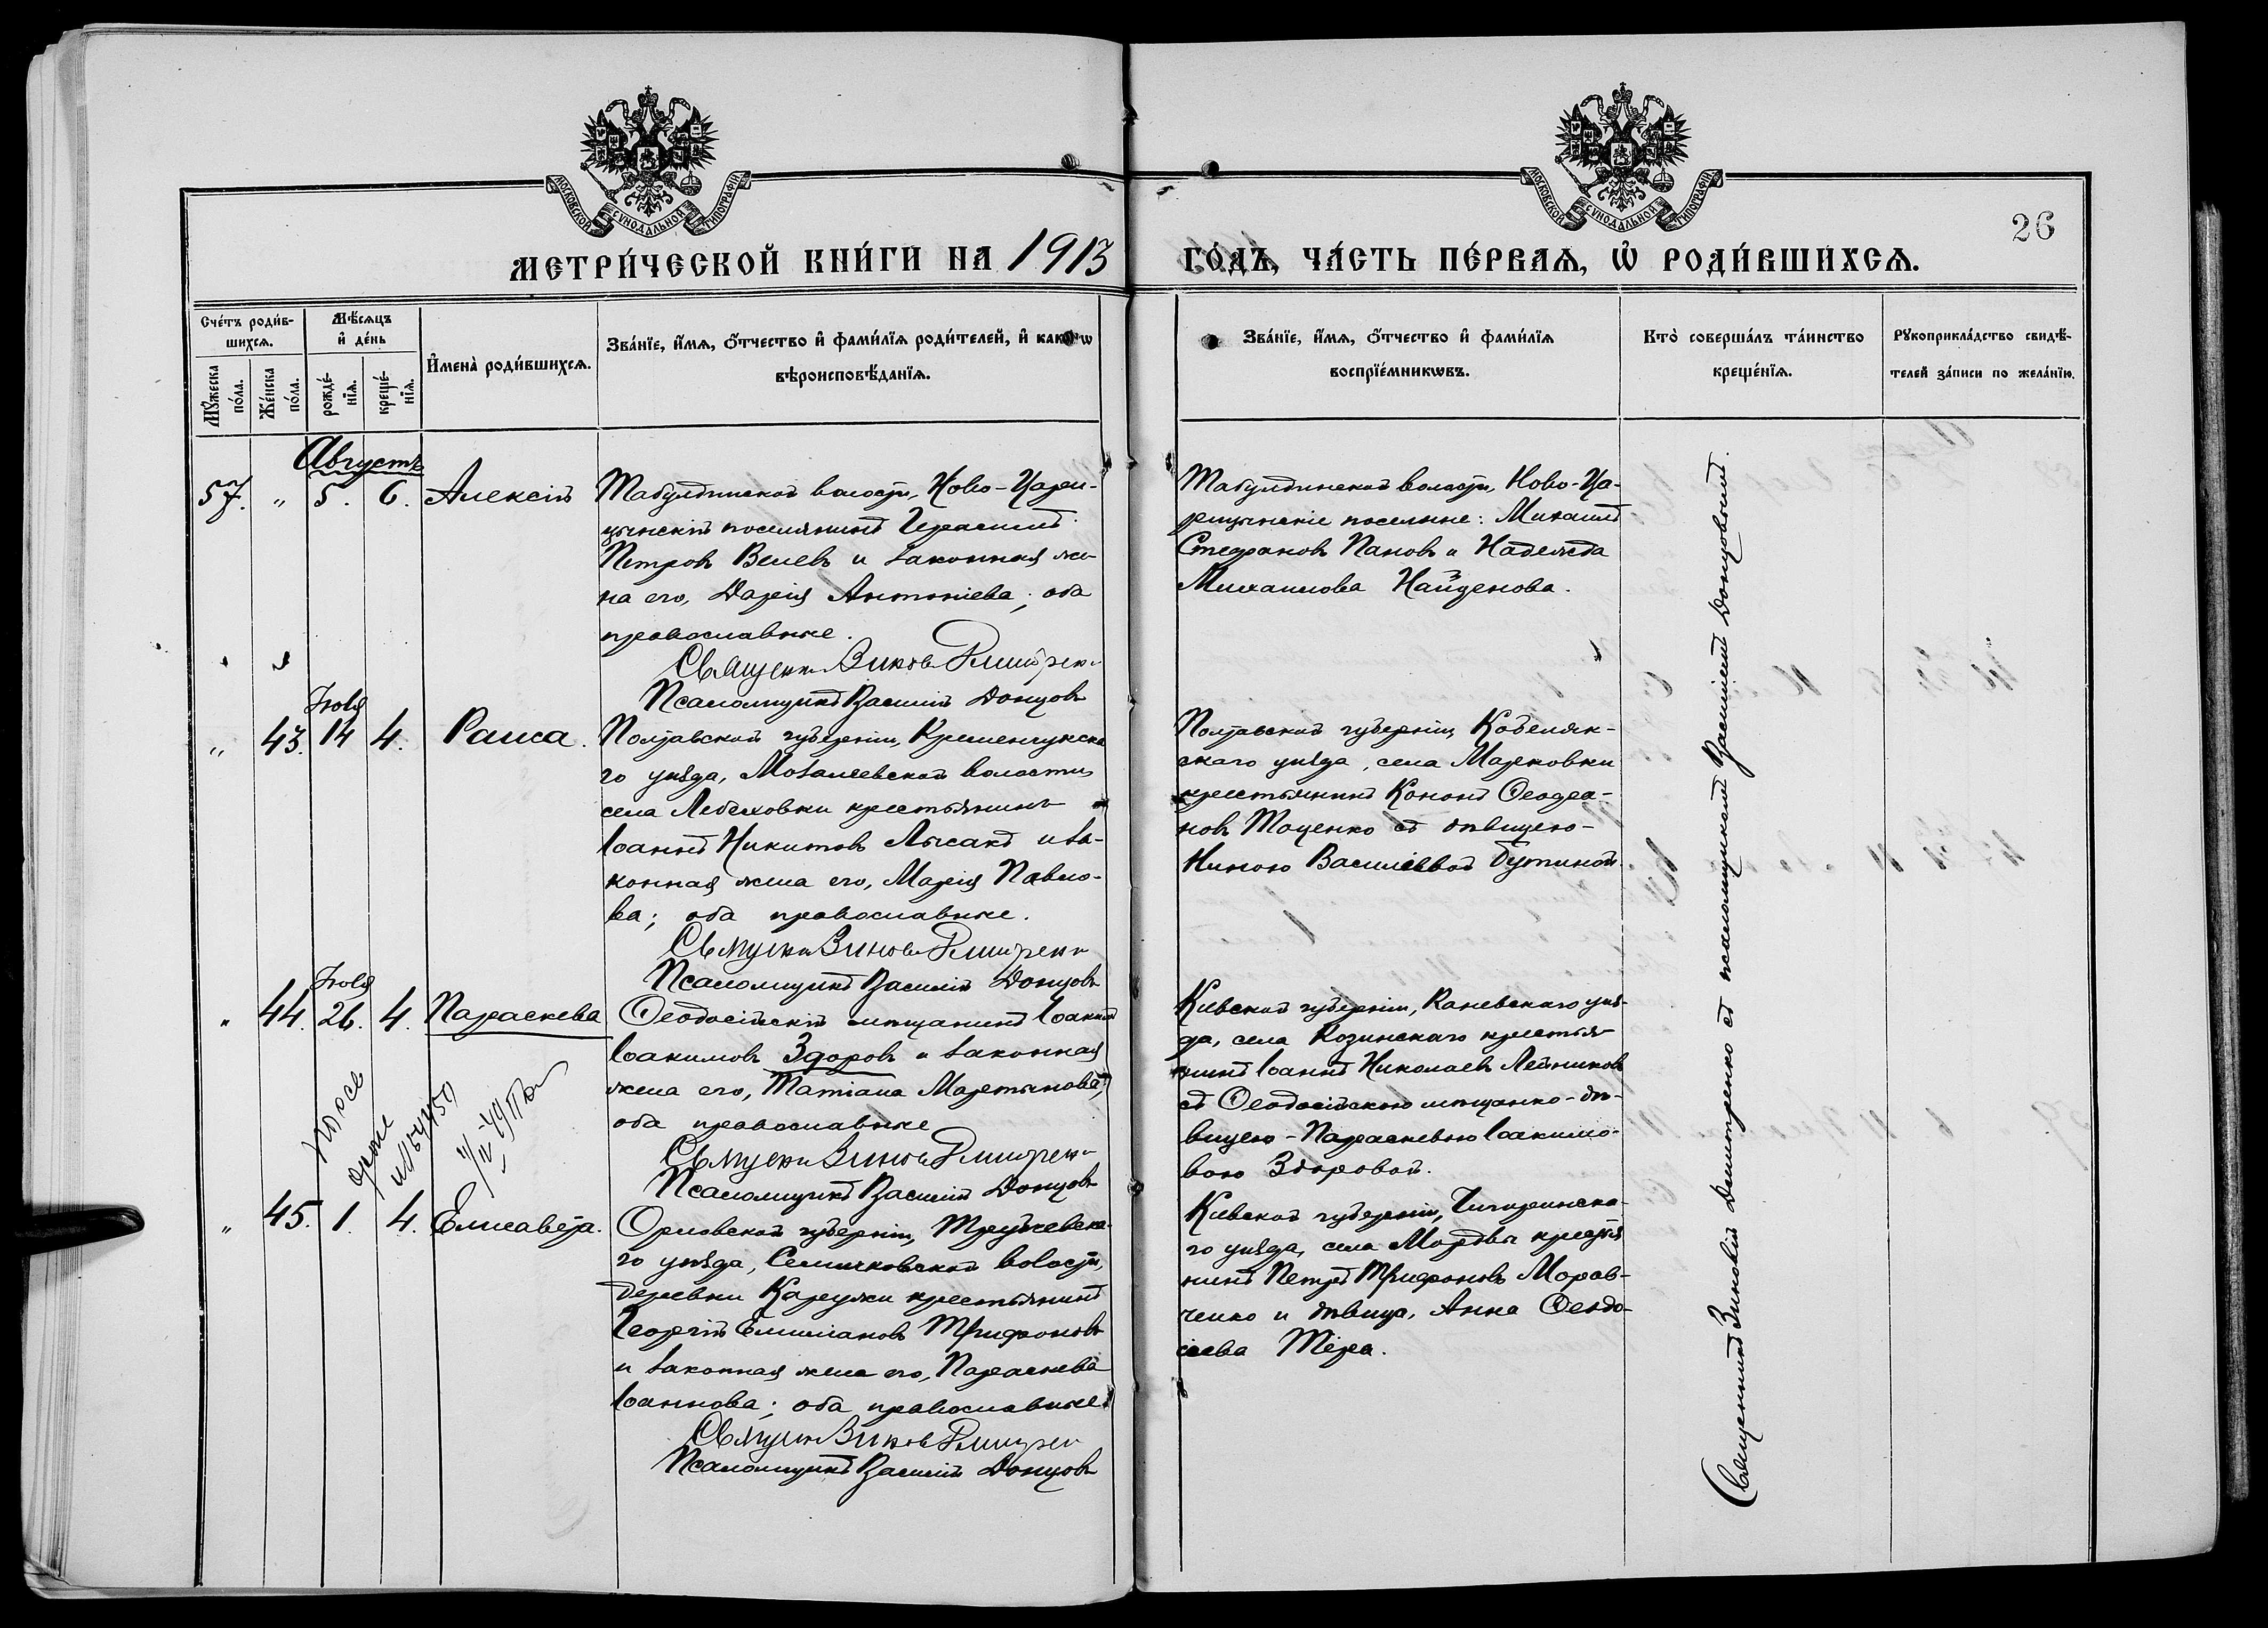 МОСКОВСКОЙ СУНОДАЛЬНОЙ ТИПОГРАФІИ
МОСКОВСКОЙ СУНОДАЛЬНОЙ ТИПОГРАФІИ
26
МЕТРИ́ЧЕСКОЙ КНИ́ГИ НА 1913
ГО́ДЪ, ЧА́СТЬ ПЕ́РВАѦ, Ѽ РОДИ́ВШИХСѦ.
Сче́тъ роди́в-
шихсѧ.
Мꙋ́жеска по́ла.
Же́нска по́ла.
Мѣ́сѧцъ
и҆ де́нь
рожде́-
нїѧ.
креще́-
нїѧ.
И҆мена̀ роди́вшихсѧ.
Зва́нїе, и҆́мѧ, ѻ҆́тчество и҆ фами́лїѧ роди́телей, и҆ какогѡ
вѣроисповѣ́данїѧ.
Зва́нїе, и҆́мѧ, ѻ҆́тчество и҆ фами́лїѧ
воспрїе́мникѡвъ.
Кто̀ соверша́лъ та́инство
креще́нїѧ.
Рꙋкоприкла́дство свидѣ́-
телей за́писи по жела́нїю.
Августъ
57. „ 5. 6. Алексій
Табулдинской волости, Ново-Цари-
цынскій поселянинъ Герасимъ
Петровъ Велевъ и законная же-
на его, Дарія Антоніева; оба
православные.
Священникъ Зиновій Дмитренко
Псаломщикъ Василій Донцовъ
Табулдинской волости, Ново-Ца-
рицынскіе поселяне: Михаилъ
Стефановъ Пановъ и Надежда
Михаилова Найденова.
Іюля
„ 43. 14 4. Раиса.
Полтавской губерніи, Кременчугска-
го уѣзда, Мозалеевской волости,
села Лебеховки крестьянинъ
Іоаннъ Никитовъ Лысакъ и за-
конная жена его, Марія Павло-
ва; оба православные.
Священникъ Зиновій Дмитренко
Псаломщикъ Василій Донцовъ
Полтавской губерніи, Кобеляк-
скаго уѣзда, села Марковки
крестьянинъ Кононъ Ѳеофа-
новъ Тоценко съ дѣвицею-
Ниною Василіевой Бутиной
Іюля
„ 44. 26. 4. Параскева
Ѳеодосійскій мѣщанинъ Іоаннъ
Іоакимовъ Здоровъ и законная
жена его, Татіана Мартынова;
оба православные
Священникъ Зиновій Дмитренко
Псаломщикъ Василій Донцовъ
Кіевской губерніи, Каневскаго уѣз-
да, села Козинскаго крестья-
нинъ Іоаннъ Николаевъ Лейниковъ
съ Ѳеодосійскою мѣщанко-дѣ-
вицею-Параскевою Іоакимо-
вою Здоровой.
„ 45. 1. 4. Елисавета.
Орловской губерніи, Трубчевска-
го уѣзда, Семячковской волости,
деревни Карбужи крестьянинъ
Георгій Емиліановъ Трифоновъ
и законная жена его, Параскева
Іоаннова; оба православные
Священникъ Зиновій Дмитренко
Псаломщикъ Василій Донцовъ
Кіевской губерніи, Чигиринска-
го уѣзда, села Мордвы крестья-
нинъ Петръ ТрифоновъМорав-
ченко и дѣвица, Анна Ѳеодо-
сіева Тера.
Священникъ Зиновій Дмитренко съ псаломщикомъ Василіемъ Донцовымъ.